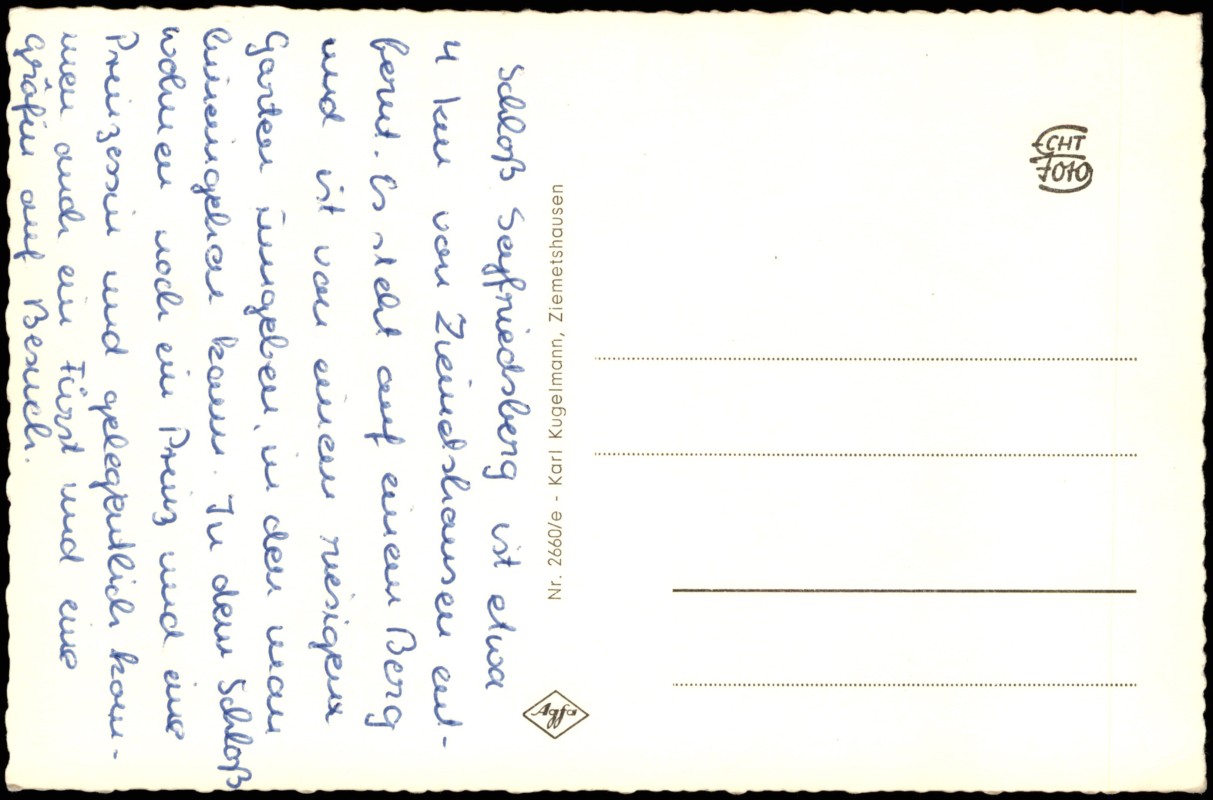 Schloß Seyfriedsberg ist etwa
4 km von Ziemetshausen ent-
fernt. Es steht auf einem Berg
und ist von einem riesigen
Garten umgeben, in den man
hineingehen kann. In dem Schloß
wohnen noch ein Prinz und eine
Prinzessin und gelegentlich kom-
men auch ein Fürst und eine
Gräfin auf Besuch.
Nr. 2660/e - Karl Kugelmann, Ziemetshausen
Agfa
ECHT
FOTO